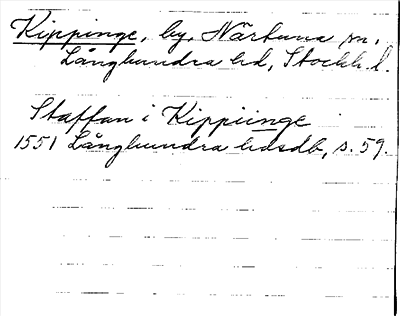 Kippinge, by, Närtuna sn,
Långhundra hd, Stockh. l.
Staffan i Kippiinge
1551 Långhundra hdsdb, s. 59.